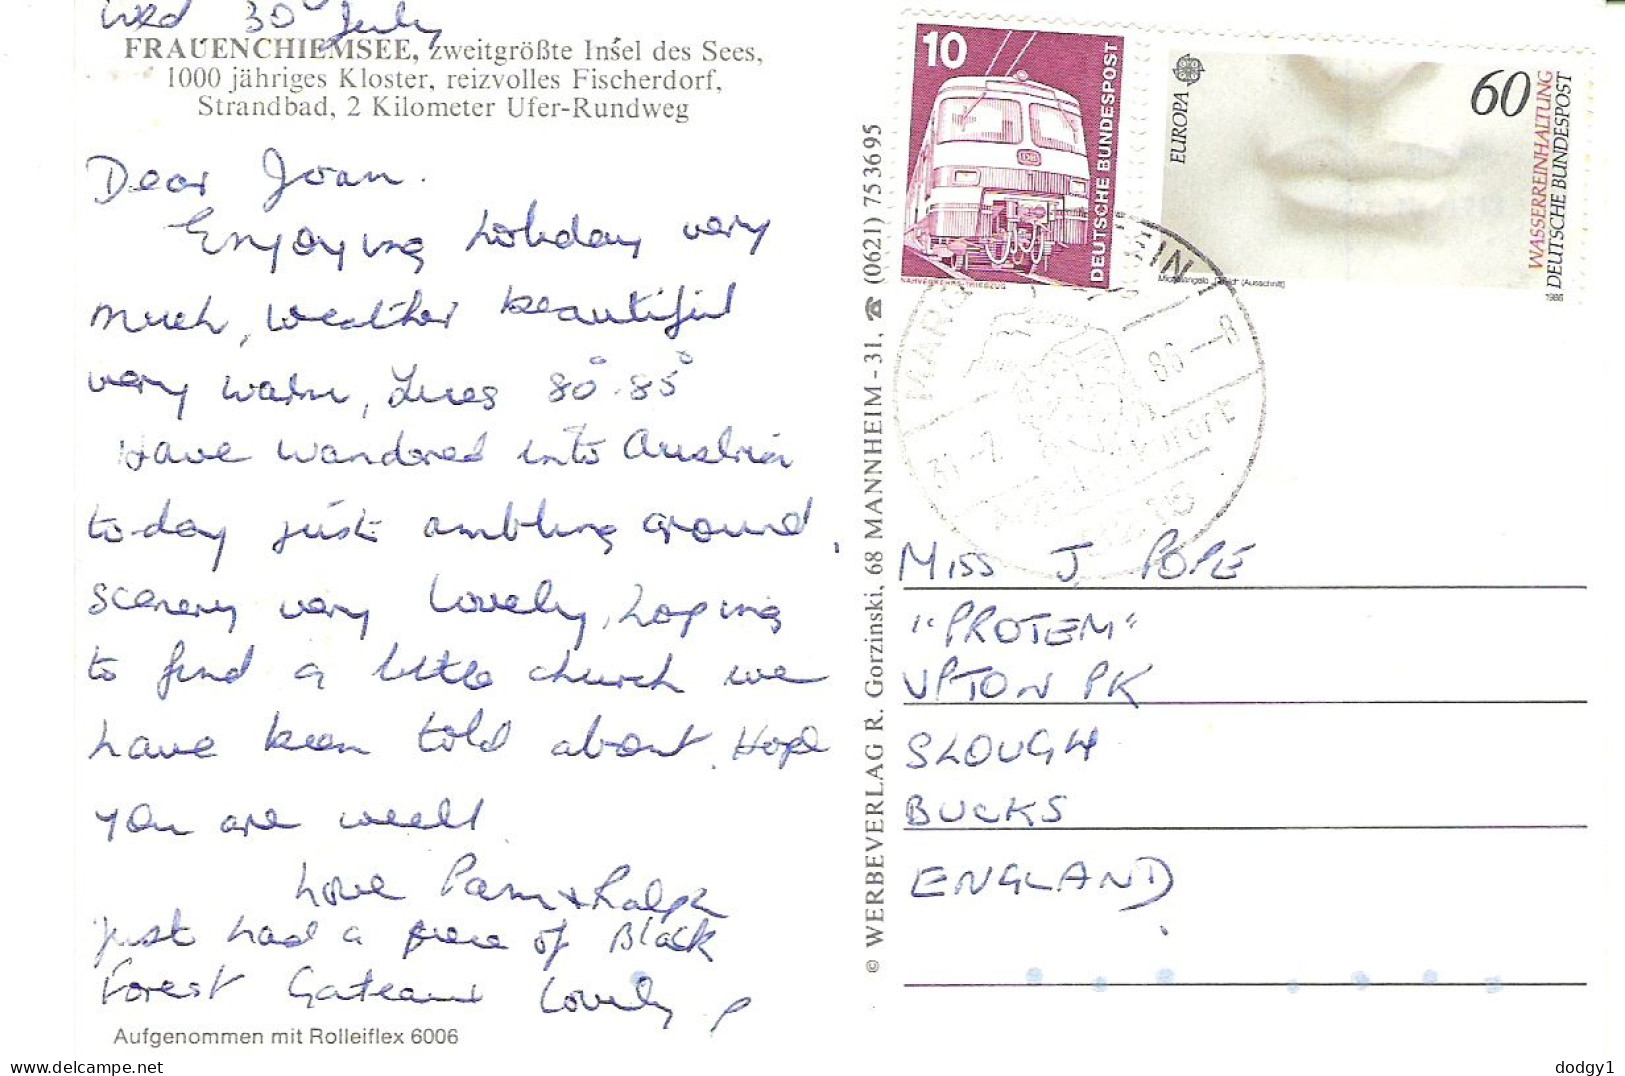 Wed 30 July
FRAUENCHIEMSEE, zweitgrößte Insel des Sees,
1000 jähriges Kloster, reizvolles Fischerdorf,
Strandbad, 2 Kilometer Ufer-Rundweg
Dear Joan.
Enjoying holiday very
much, weather beautiful
very warm, 80°.85°
Have wandered into Austria
to-day just ambling around,
scenery very lovely, hoping
to find a little church we
have been told about. Hope
you are well
Love Pam & Ralph
Just had a piece of Black
Forest Gateaux Lovely
Aufgenommen mit Rolleiflex 6006
© WERBEVERLAG R. Gorzinski, 68 MANNHEIM - 31, ☎ (0621) 753695
10
DEUTSCHE BUNDESPOST
DB
NAHVERKEHRS-TRIEBZUG
EUROPA
60
WASSERREINHALTUNG
DEUTSCHE BUNDESPOST
Michelangelo „David“ (Ausschnitt)
1986
MAR EIN
31.-7. 86 -- 8
MISS J POPE
"PROTEM"
UPTON PK
SLOUGH
BUCKS
ENGLAND.
dodgy1